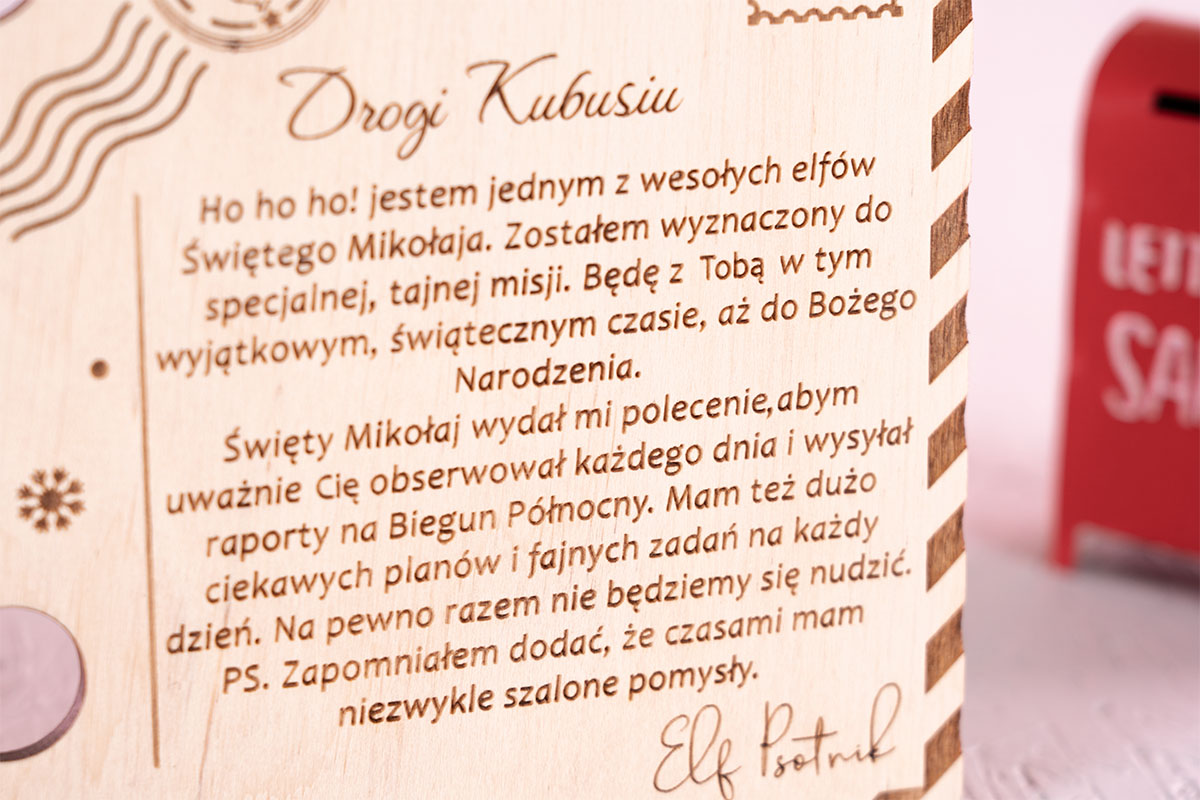 Drogi Kubusiu
Ho ho ho! jestem jednym z wesołych elfów
Świętego Mikołaja. Zostałem wyznaczony do
specjalnej, tajnej misji. Będę z Tobą w tym
wyjątkowym, świątecznym czasie, aż do Bożego
Narodzenia.
Święty Mikołaj wydał mi polecenie,abym
uważnie Cię obserwował każdego dnia i wysyłał
raporty na Biegun Północny. Mam też dużo
ciekawych planów i fajnych zadań na każdy
dzień. Na pewno razem nie będziemy się nudzić.
PS. Zapomniałem dodać, że czasami mam
niezwykle szalone pomysły.
Elf Psotnik